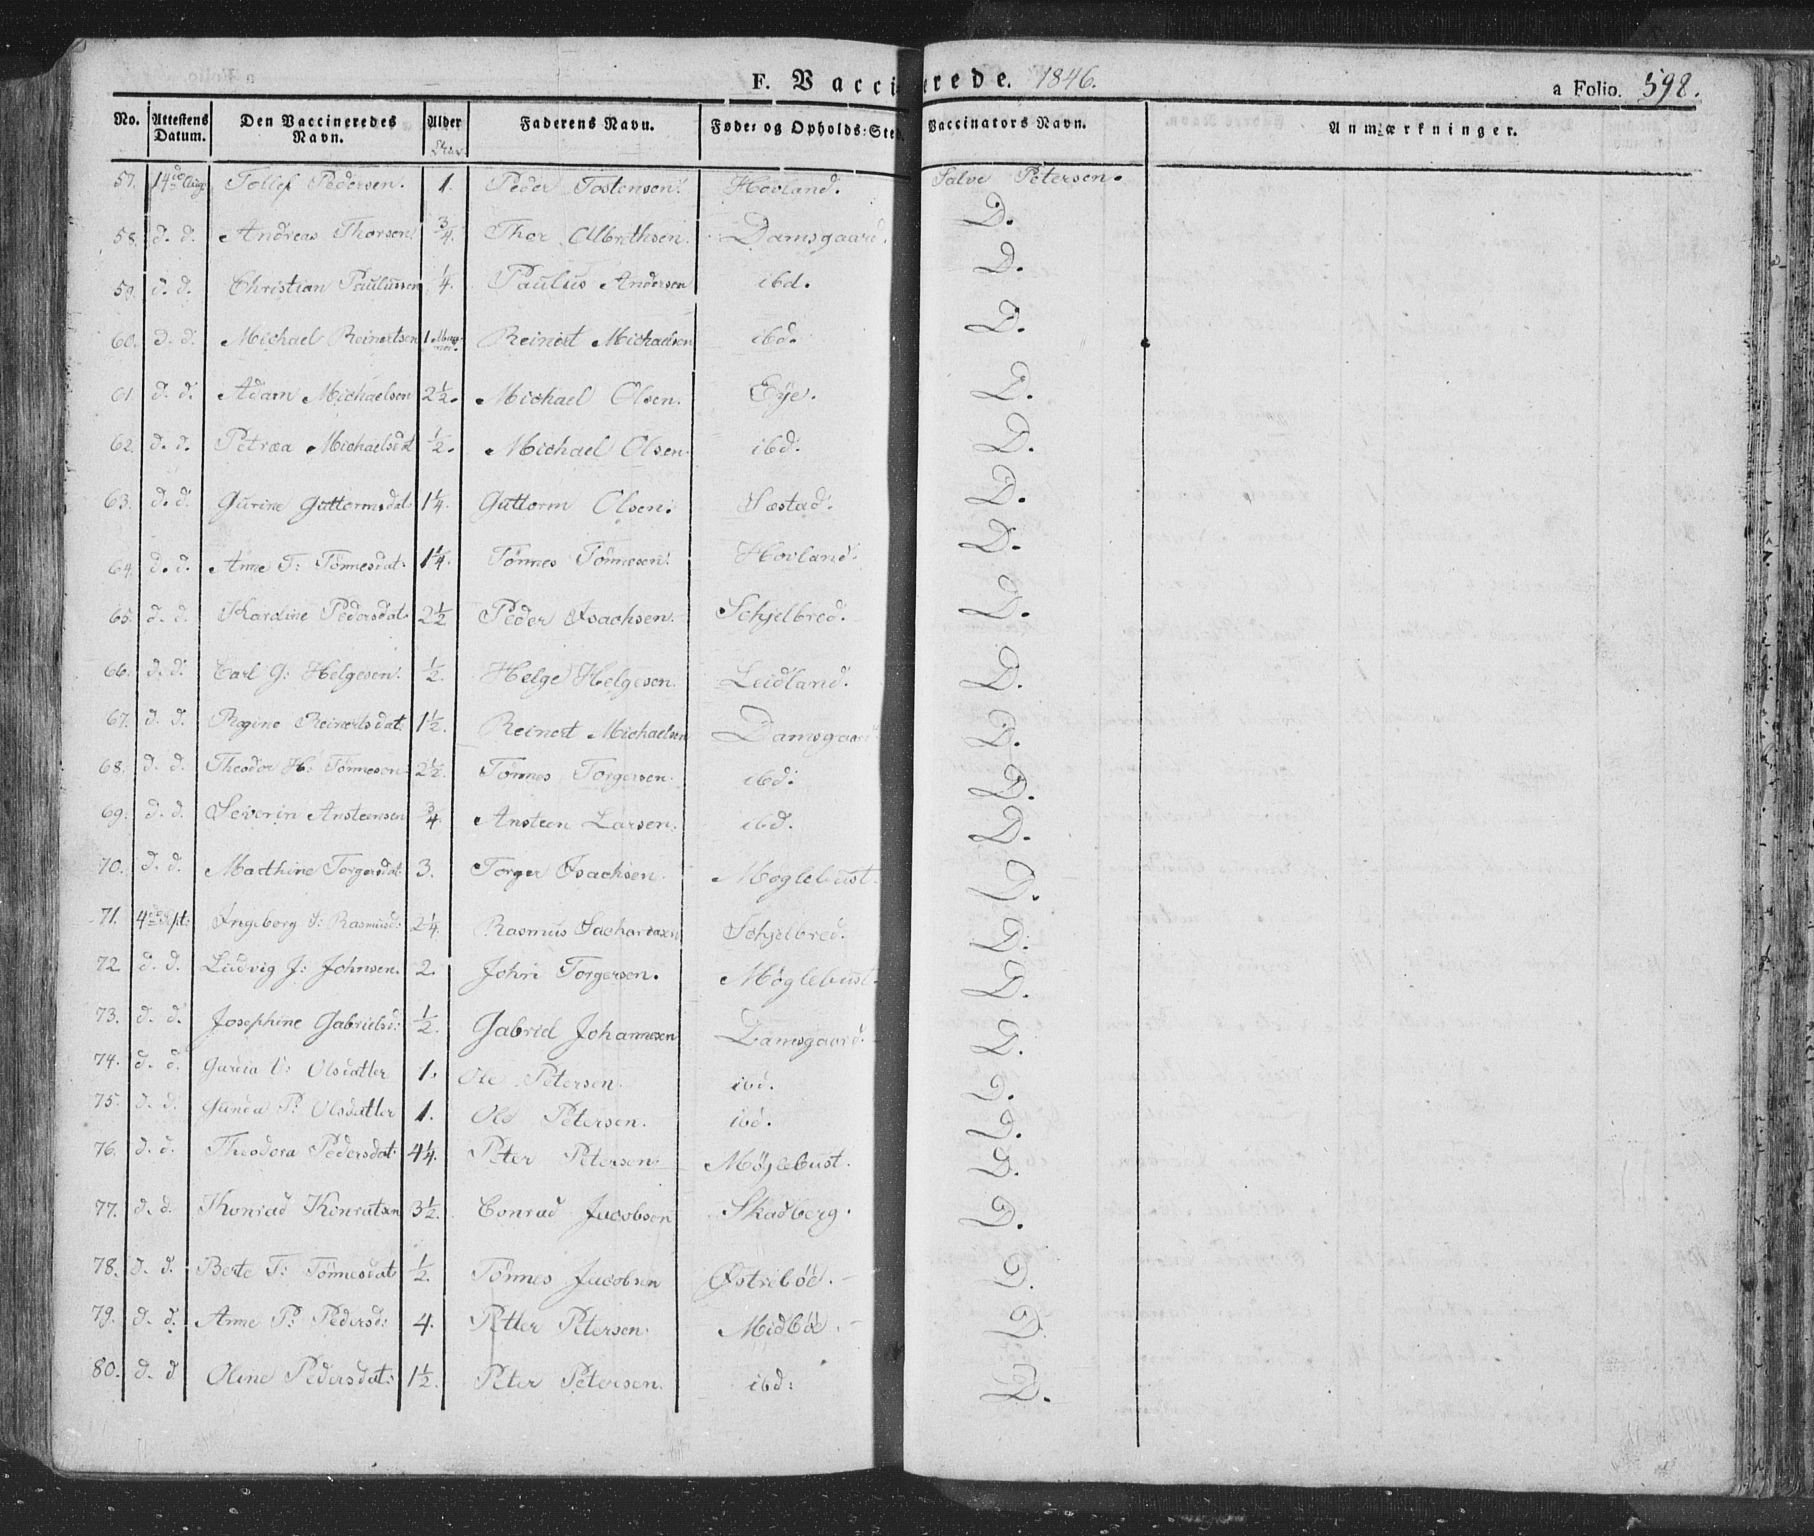 F. Vaccinerede. 1846. a Folio. 598.
No. Attestens Datum. Den Vaccineredes Navn. Alder Faderens Navn. Føde: og Opholds: Sted. Vaccinators Navn. Anmærkninger.
57. 14de Aug Tollef Pedersen. 1. Peder Tostensen. Hovland. Salve Petersen.
58. d. d. Andreas Thorsen. 3/4. Thor Albrethsen. Damsgaard. D.
59. d. d. Christian Paulussen 1/4. Paulus Andersen ibd. D.
60. d. d. Michael Reinertsen 1 Reinert Michaelsen ibd. D.
61 d. d. Adam Michaelsen 2 1/2. Michael Olsen. Eye. D.
62. d. d. Petrea Michaelsdat 1/2. Michael Olsen. ibd. D.
63. d. d. Gurine Guttormsdat 1 1/4. Guttorm Olsen. Sæstad. D.
64. d. d. Anne T: Tönnesdat: 1 1/4. Tönnes Tönnesen. Hovland. D.
65. d. d. Karoline Pedersdat 2 1/2 Peder Isachsen. Schjelbred. D.
66. d. d. Carl G: Helgesen. 1/2. Helge Helgesen. Leidland. D.
67. d. d. Regine Reinertsdat. 1 1/2. Reinert Michaelsen Damsgaard D.
68. d. d. Theodor H: Tönnesen 2 1/2. Tönnes Torgersen. ibd. D.
69. d. d. Severin Ansteensen 3/4. Ansteen Larsen. ibd. D.
70. d. d. Mathine Torgersdat. 3. Torger Isachsen. Møglebust. D.
71. 4de Spt: Ingeborg S: Rasmusd: 2 1/4. Rasmus Sachariasen Schjelbred. D.
72. d. d. Ludvig J: Johnsen. 2. John Torgersen. Møglebust. D.
73. d. d. Josephine Gabrielsd: 1/2. Gabriel Johannesen Damsgaard. D.
74. d. d. Olsdatter 1. Ole Petersen. ibd. D.
75. d. d. Gunda P: Olsdatter 1. Ole Petersen. ibd. D.
76. d. d. Theodora Pedersdat. 4 1/4. Peter Petersen. Møglebust. D.
77. d. d. Konrad Konradsen 3 1/2. Conrad Jacobsen Skadberg. D.
78. d. d. Berte T: Tönnesdat 1/2. Tönnes Jacobsen Østeböe. D.
79. d. d. Anne P: Pedersd: 4. Petter Petersen. Midböe. D.
80. d. d Oline Pedersdat: 1 1/2. Peter Petersen. ibd: D.